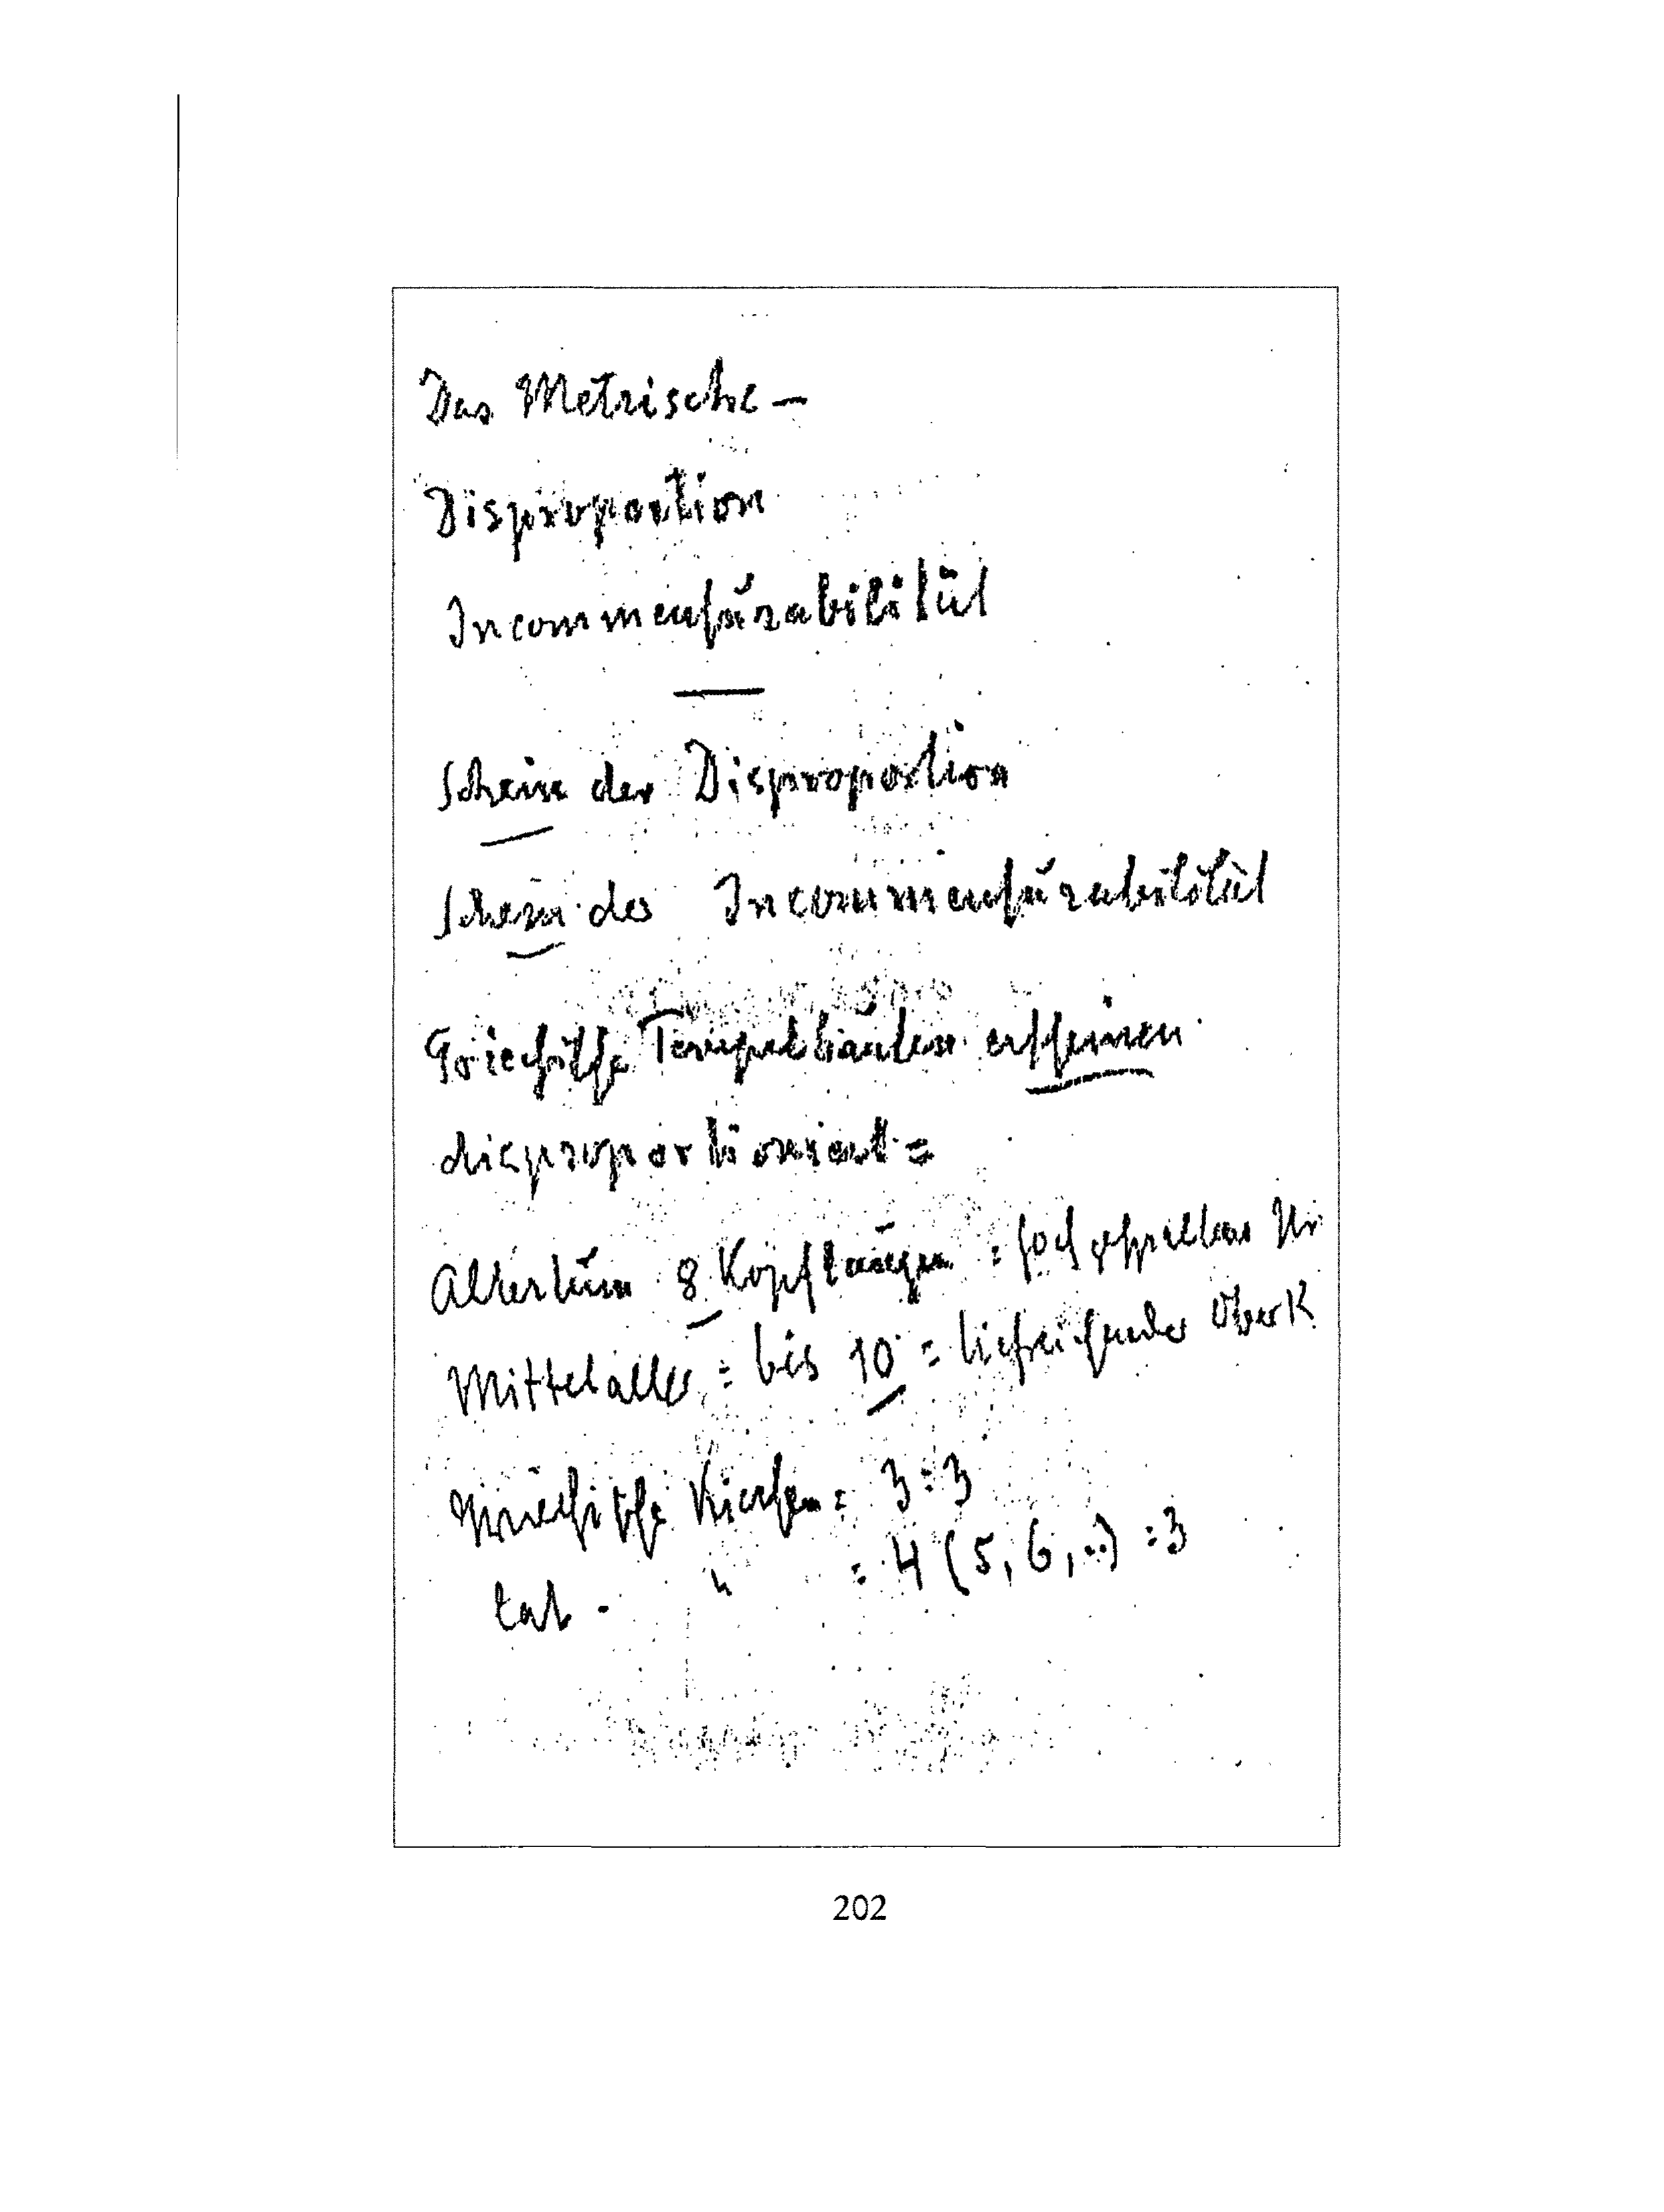 Das Metrische –
Disproportion
Incommensurabilität
Schein der Disproportion
Schein der Incommensurabilität
Griechische Tempelbauten erscheinen
disproportioniert =
Altertum 8 Kopflängen : hochgespaltener Un
Mittelalter = bis 10 = tiefreichender Oberk
Griechische Kirchen = 3:3
lat - " = 4 (5, 6, ..) :3
202